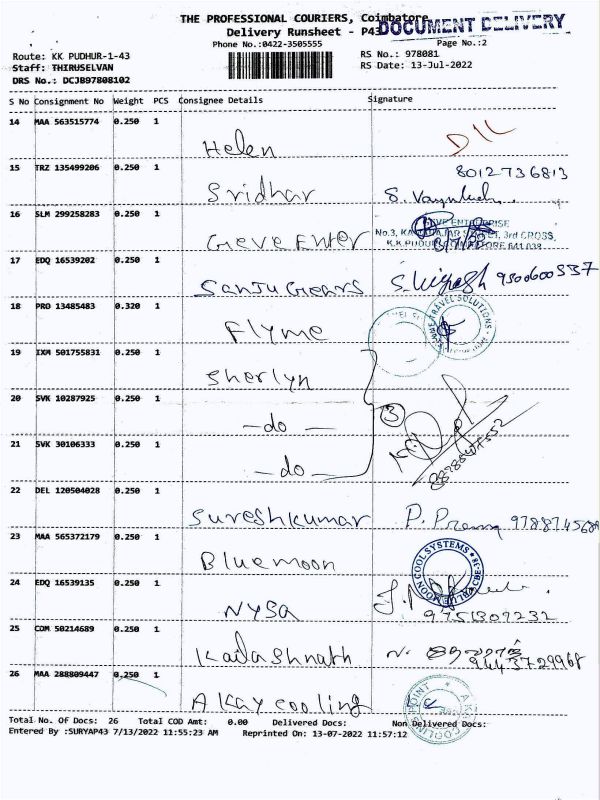 THE PROFESSIONAL COURIERS, Coimbatore
DOCUMENT DELIVERY
Delivery Runsheet - P43
Phone No.:0422-3505555
Page No.:2
Route: KK PUDHUR-1-43
RS No.: 978081
Staff: THIRUSELVAN
RS Date: 13-Jul-2022
DRS No.: DCJB97808102
S No Consignment No Weight PCS Consignee Details Signature
14 MAA 563515774 0.250 1
Helen D/L
15 TRZ 135499206 0.250 1
8012736813
Sridhar S.
16 SLM 299258283 0.250 1
ENTERPRISE
No.3, 3rd CROSS,
Geve Enter
K.K.PUDUR, COIMBATORE 641 038
17 EDQ 16539202 0.250 1
Sanju Gears S.
18 PRO 13485483 0.320 1
TRAVEL SOLUTIONS
Flyme
19 IXM 501755831 0.250 1
Sherlyn
20 SVK 10287925 0.250 1
-do - 3
21 SVK 30106333 0.250 1
-do -
22 DEL 120504028 0.250 1
Sureshkumar P.
23 MAA 565372179 0.250 1
BLUE MOON COOL SYSTEMS
Bluemoon
24 EDQ 16539135 0.250 1
Nysa
9751309232
25 COM 50214689 0.250 1
Kailashnath N.
9443729968
26 MAA 288809447 0.250 1
Akay cooling
AKAY COOLING POINT
Total No. Of Docs: 26 Total COD Amt: 0.00 Delivered Docs: Non Delivered Docs:
Entered By :SURYAP43 7/13/2022 11:55:23 AM Reprinted On: 13-07-2022 11:57:12